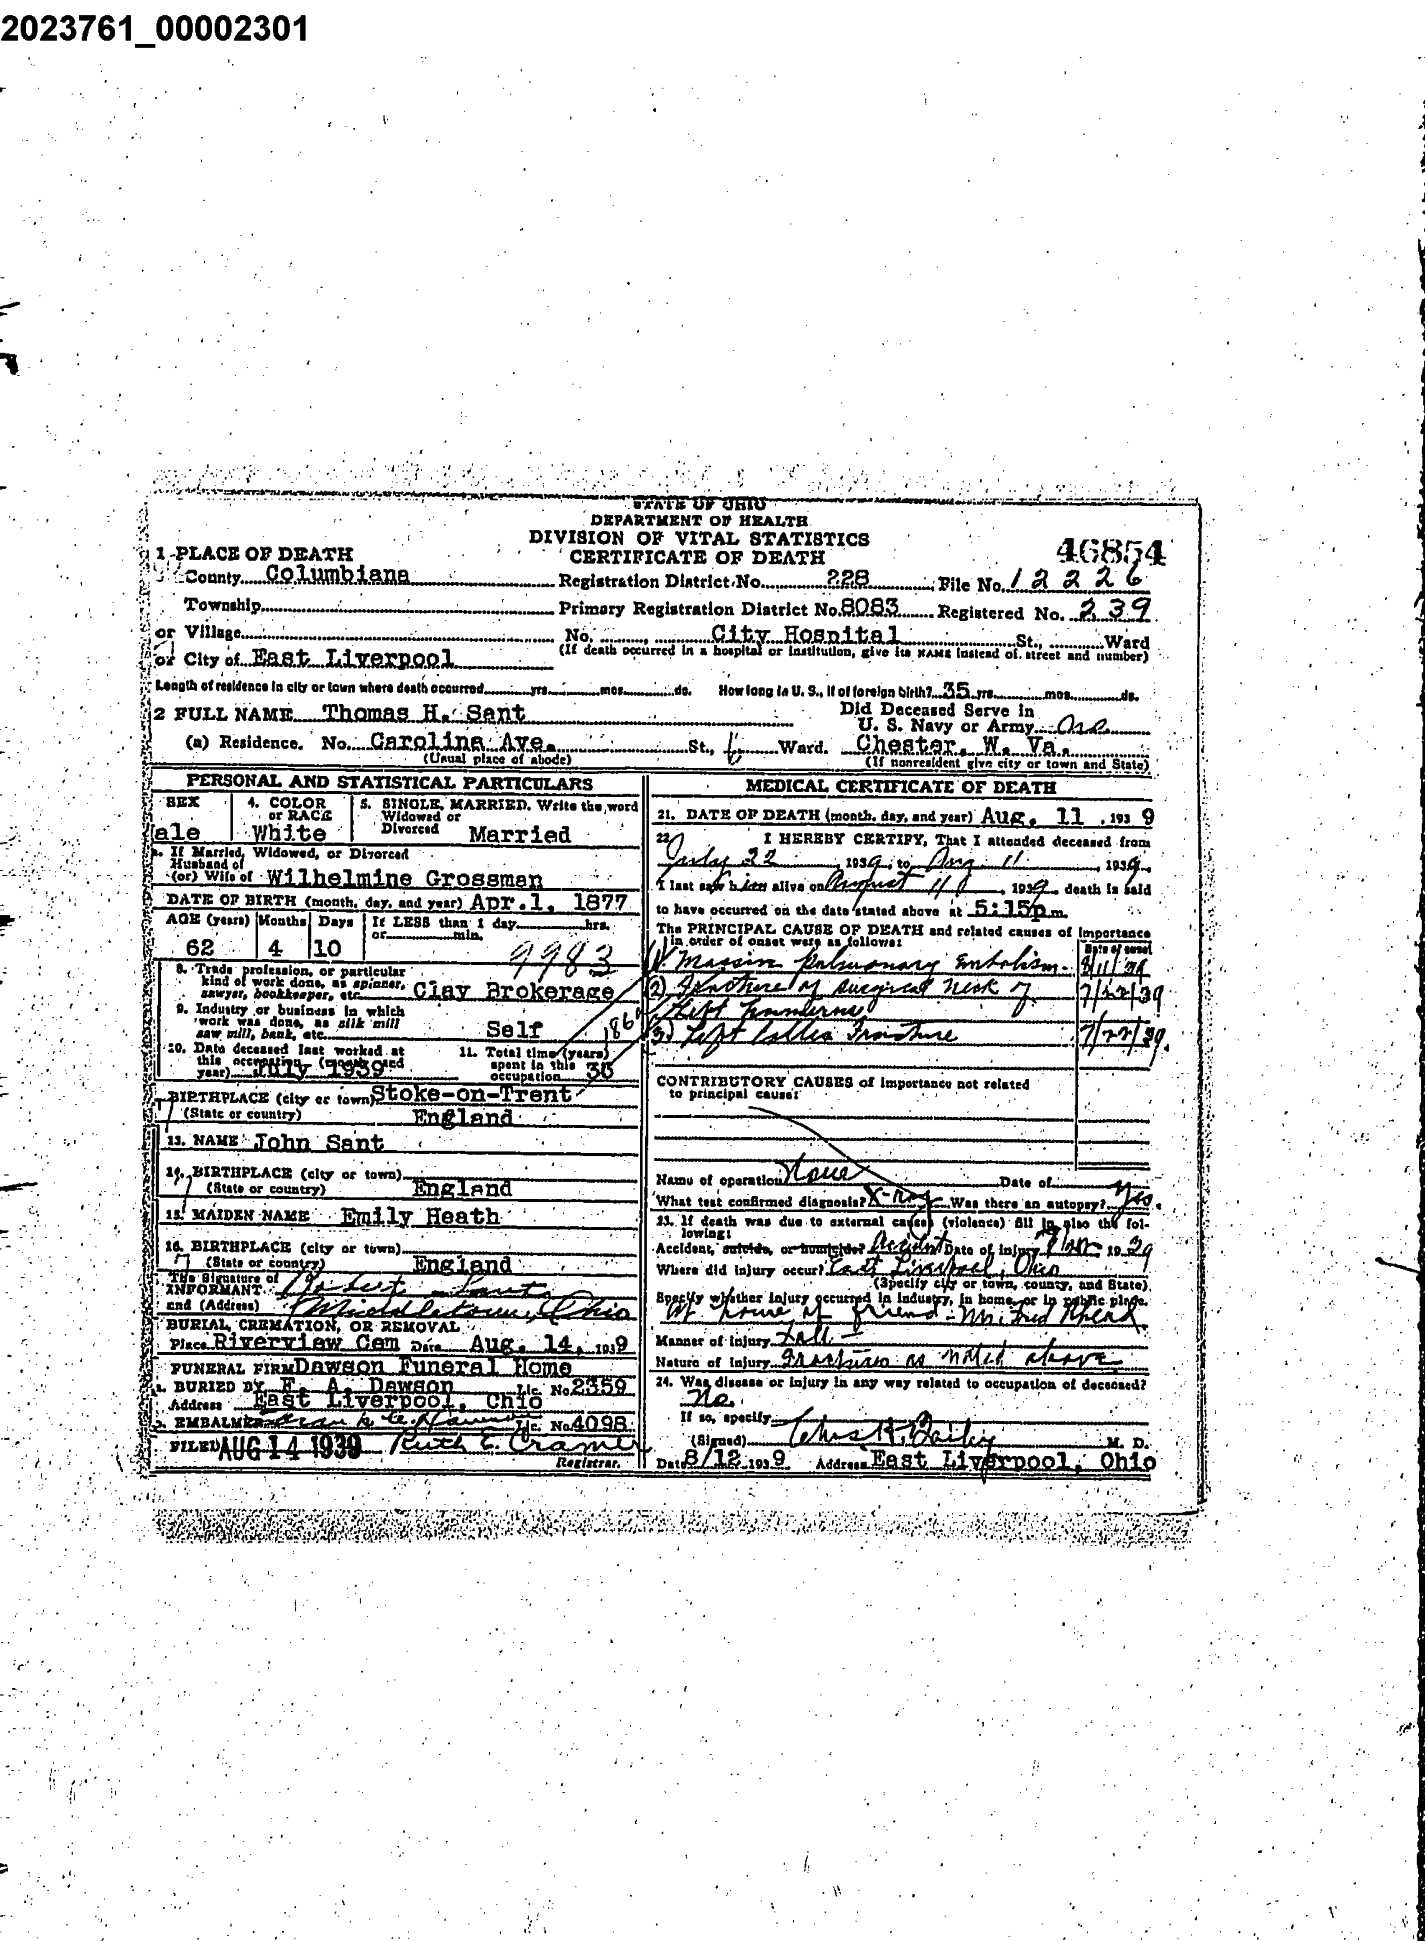 2023761_00002301
STATE OF OHIO
DEPARTMENT OF HEALTH
DIVISION OF VITAL STATISTICS
CERTIFICATE OF DEATH
46854
1 PLACE OF DEATH
County Columbiana Registration District No. 228 File No. 12226
Township Primary Registration District No. 8083 Registered No. 239
or Village No. City Hospital St., Ward
(If death occurred in a hospital or institution, give its NAME instead of street and number)
or City of East Liverpool
Length of residence in city or town where death occurred yrs. mos. ds. How long in U. S., if of foreign birth? 35 yrs. mos. ds.
2 FULL NAME Thomas H. Sant Did Deceased Serve in
U. S. Navy or Army
(a) Residence. No. Carolina Ave. St., Ward. Chester, W. Va.
(Usual place of abode) (If nonresident give city or town and State)
PERSONAL AND STATISTICAL PARTICULARS
SEX 4. COLOR or RACE 5. SINGLE, MARRIED, Write the word Widowed or Divorced
ale White Married
If Married, Widowed, or Divorced
Husband of
(or) Wife of Wilhelmine Grossman
DATE OF BIRTH (month, day, and year) Apr. 1, 1877
AGE (years) Months Days If LESS than 1 day hrs.
or min.
62 4 10
9983
8. Trade profession, or particular
kind of work done, as spinner,
sawyer, bookkeeper, etc. Clay Brokerage
9. Industry or business in which
work was done, as silk mill
saw mill, bank, etc. Self
186
10. Date deceased last worked at
this occupation (month and
year) July 1939
11. Total time (years)
spent in this
occupation 35
BIRTHPLACE (city or town) Stoke-on-Trent
(State or country) England
13. NAME John Sant
14. BIRTHPLACE (city or town)
(State or country) England
15. MAIDEN NAME Emily Heath
16. BIRTHPLACE (city or town)
(State or country) England
The Signature of
INFORMANT Robert Sant
and (Address) Middletown, Ohio
BURIAL, CREMATION, OR REMOVAL
Place Riverview Cem Date Aug. 14, 1939
FUNERAL FIRM Dawson Funeral Home
BURIED BY F. A. Dawson Lic. No. 2359
Address East Liverpool, Ohio
EMBALMER Lic. No. 4098
FILED AUG 14 1939 Ruth E. Cramer
Registrar.
MEDICAL CERTIFICATE OF DEATH
21. DATE OF DEATH (month, day, and year) Aug. 11, 1939
22. I HEREBY CERTIFY, That I attended deceased from
July 22, 1939, to Aug 11, 1939,
I last saw him alive on August 11, 1939, death is said
to have occurred on the date stated above at 5:15p m.
The PRINCIPAL CAUSE OF DEATH and related causes of importance
in order of onset were as follows: Date of onset
1. Massive pulmonary embolism 8/11/39
(2) Fracture of surgical neck of 7/22/39
left humerus
(3) Left Colles Fracture 7/22/39.
CONTRIBUTORY CAUSES of importance not related
to principal cause:
Name of operation None Date of
What test confirmed diagnosis? X-Ray Was there an autopsy? yes.
23. If death was due to external causes (violence) fill in also the fol-
lowing:
Accident, suicide, or homicide? Accident Date of injury 7/22 1939
Where did injury occur? East Liverpool, Ohio
(Specify city or town, county, and State)
Specify whether injury occurred in industry, in home, or in public place.
At house of friend - Mr. Fred Rhead.
Manner of injury Fall
Nature of injury Fractures as noted above
24. Was disease or injury in any way related to occupation of deceased?
No.
If so, specify
(Signed) M. D.
Date 8/12 1939 Address East Liverpool, Ohio